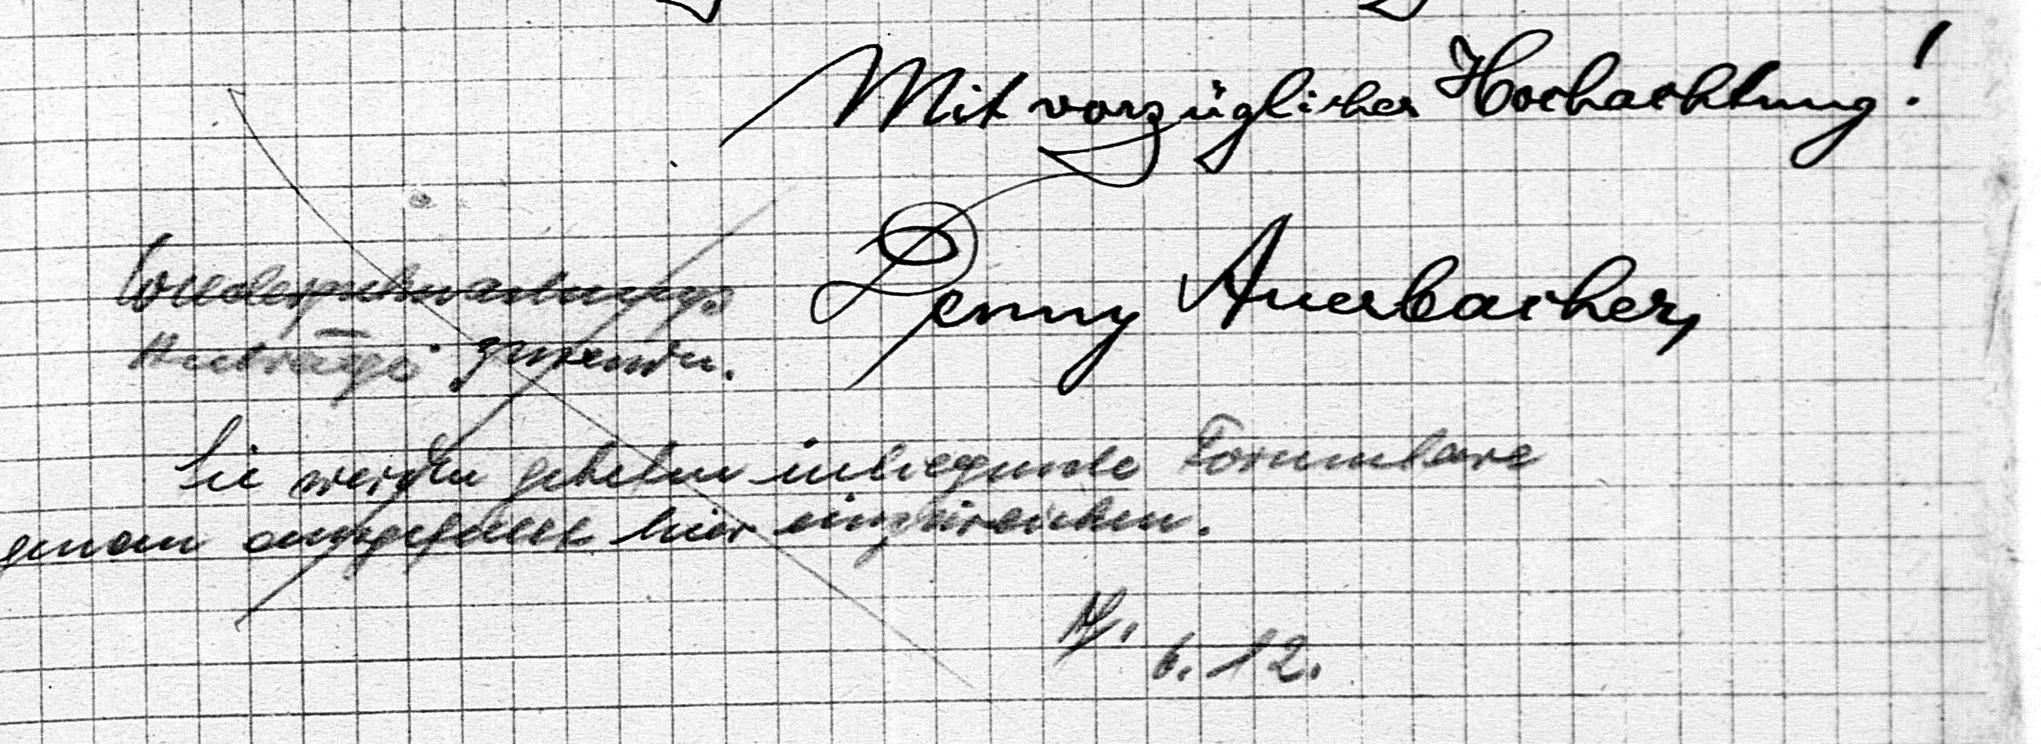 Mit vorzüglicher Hochachtung!
Penny Auerbacher,
Wiedergutmachungs
Anträge zusenden.
Sie werden gebeten inliegende Formulare
genau ausgefüllt hier einzureichen.
6. 12.